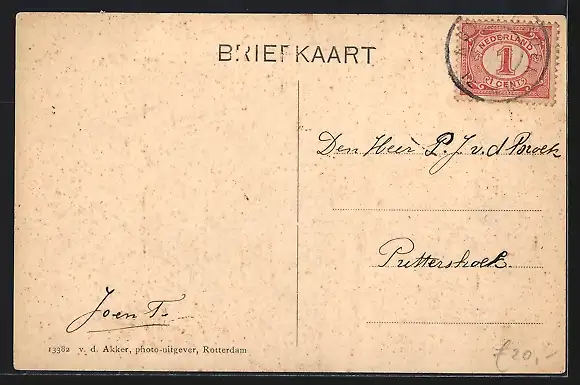 BRIEFKAART
NEDERLAND
1
1 CENT
Den Heer P. J. v. d Broek
Puttershoek.
Joen T.
13382 v. d. Akker, photo-uitgever, Rotterdam
€20,-